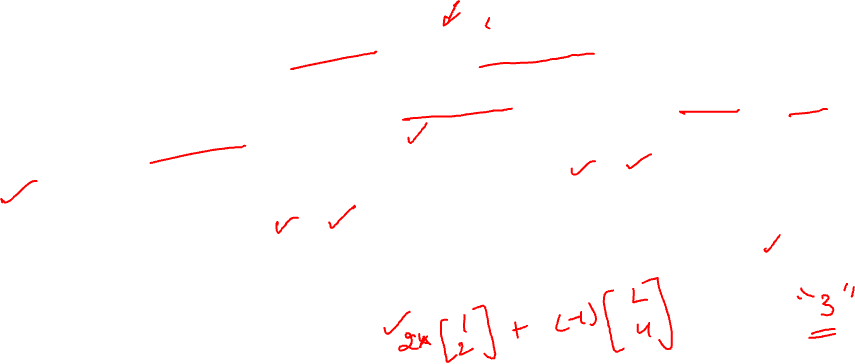 2x [1 2] + (-1) [2 4]
"3"